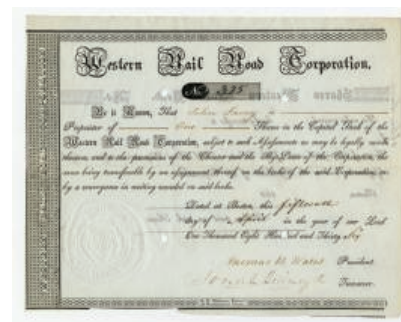 Western Rail Road Corporation.
No 325
Be it Known, That
Proprietor of One Share in the Capital Stock of the
Western Rail Road Corporation, subject to such Assessments as may be legally made
thereon, and to the provisions of the Charter and the Bye-Laws of the Corporation, the
same being transferable by an assignment thereof on the books of the said Corporation, or
by a conveyance in writing recorded in said books.
Dated at Boston, this fifteenth
day of April in the year of our Lord
One Thousand Eight Hundred and Thirty Six
Thomas B. Wales President
Josiah Quincy Jr Treasurer